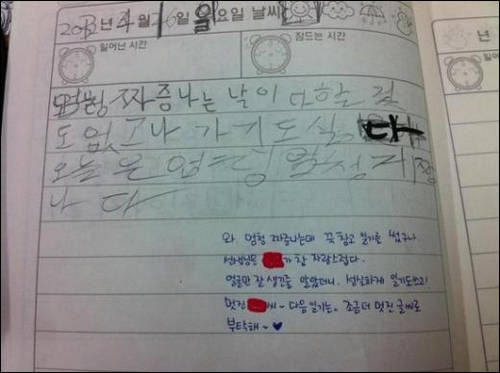 2012년 4월 일 일요일 날씨
일어난 시간 잠드는 시간
년
엄청 짜증나는 날이다 할 걸
도 없고 나가기도 실 다
오늘은 엄청 짜
나다
와 멈청 짜증나는데 꾹 참고 일기를 썼구나
선생님은 가 참 자랑스럽다.
얼굴만 잘생긴줄 알았더니, 성실하게 일기도쓰고!
멋진 씨~ 다음 일기는, 조금더 멋진 글씨로
부탁해~♥